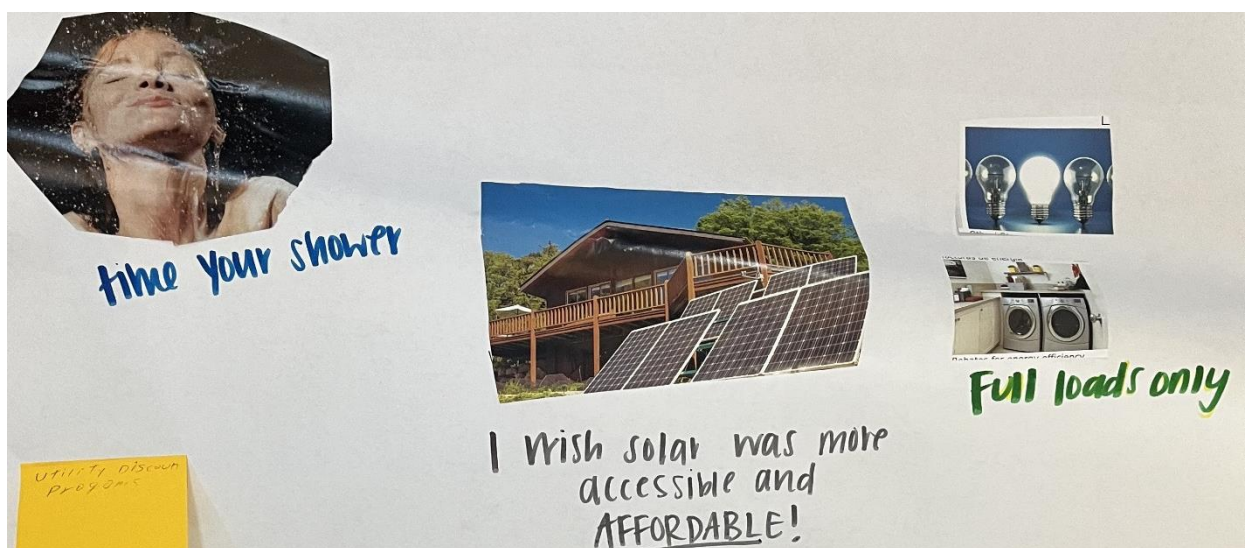 time your shower
I wish solar was more
accessible and
AFFORDABLE!
Rebates for energy efficiency
Full loads only
Utility Discoun
Progams